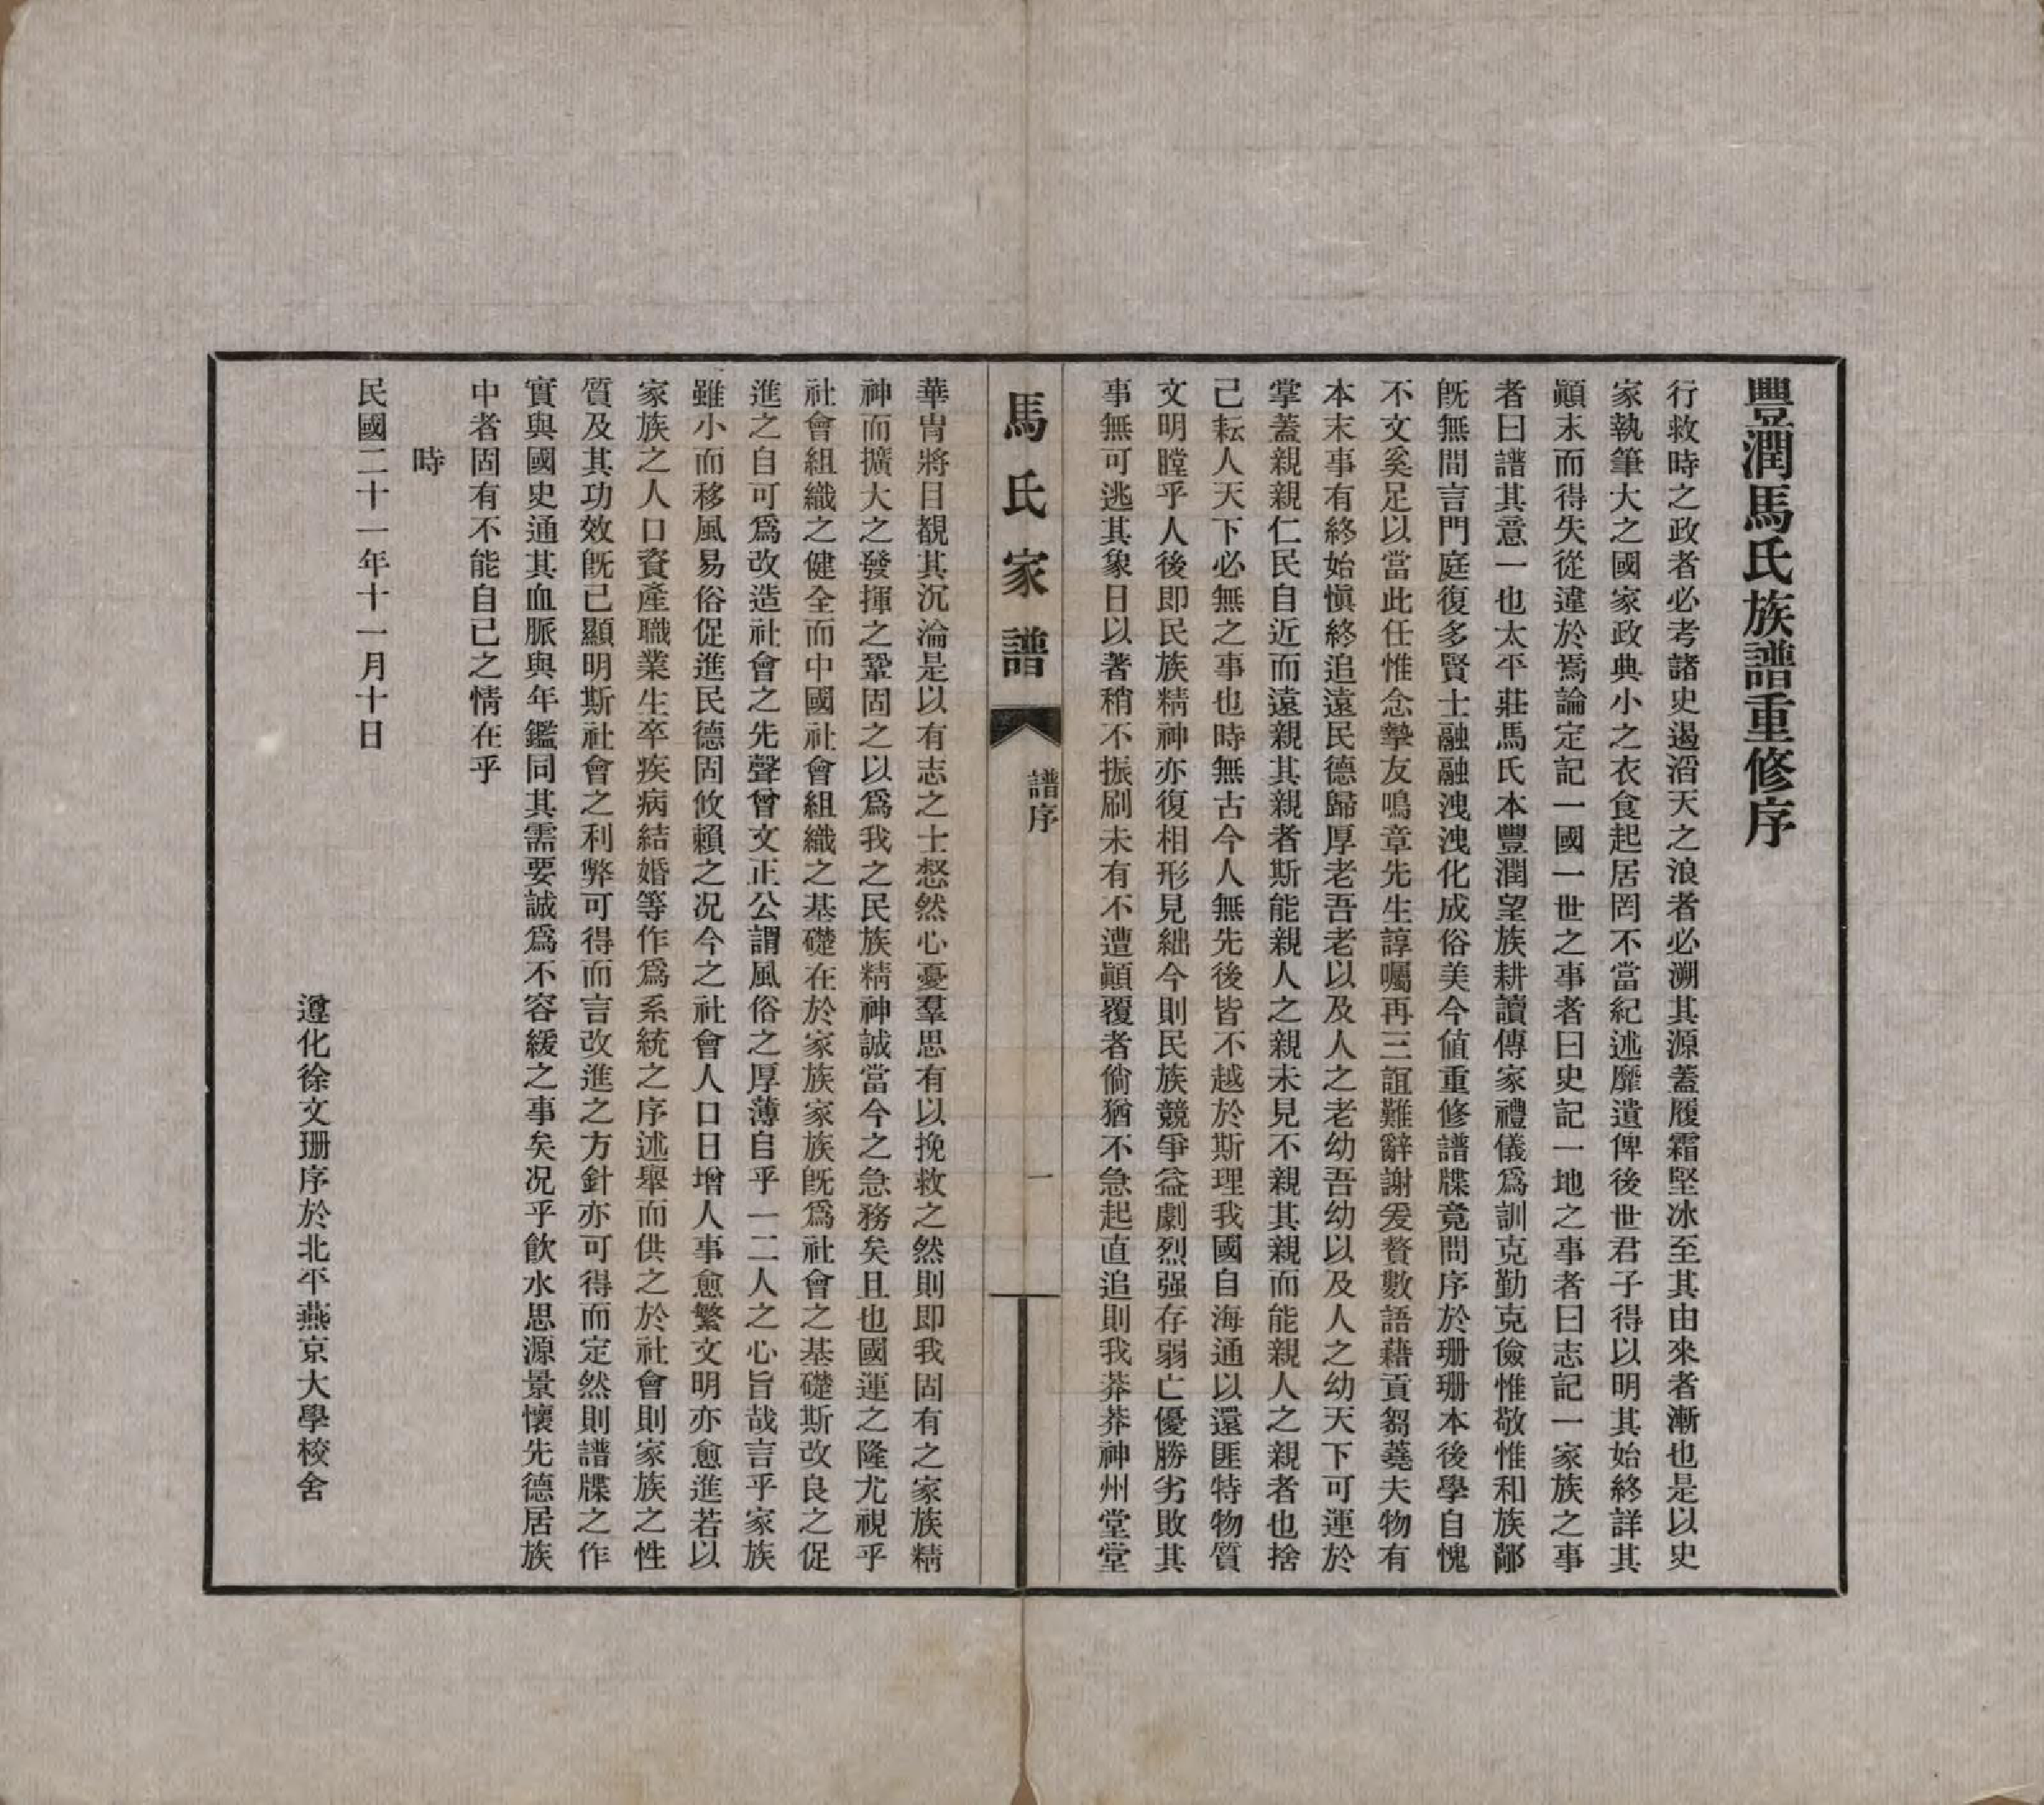 豐潤馬氏族譜重修序
行救時之政者必考諸史遏滔天之浪者必溯其源蓋履霜堅冰至其由來者漸也是以史
家執筆大之國家政典小之衣食起居罔不當紀述靡遺俾後世君子得以明其始終詳其
顚末而得失從違於焉論定記一國一世之事者曰史記一地之事者曰志記一家族之事
者曰譜其意一也太平莊馬氏本豐潤望族耕讀傳家禮儀爲訓克勤克儉惟敬惟和族鄰
旣無間言門庭復多賢士融融洩洩化成俗美今値重修譜牒竟問序於珊珊本後學自愧
不文奚足以當此任惟念摯友鳴章先生諄囑再三誼難辭謝爰贅數語藉貢芻蕘夫物有
本末事有終始愼終追遠民德歸厚老吾老以及人之老幼吾幼以及人之幼天下可運於
掌蓋親親仁民自近而遠親其親者斯能親人之親未見不親其親而能親人之親者也捨
己耘人天下必無之事也時無古今人無先後皆不越於斯理我國自海通以還匪特物質
文明瞠乎人後即民族精神亦復相形見絀今則民族競爭益劇烈强存弱亡優勝劣敗其
事無可逃其象日以著稍不振刷未有不遭顚覆者倘猶不急起直追則我莽莽神州堂堂
馬氏家譜
譜序
一
華胄將目覩其沉淪是以有志之士惄然心憂羣思有以挽救之然則即我固有之家族精
神而擴大之發揮之鞏固之以爲我之民族精神誠當今之急務矣且也國運之隆尤視乎
社會組織之健全而中國社會組織之基礎在於家族家族旣爲社會之基礎斯改良之促
進之自可爲改造社會之先聲曾文正公謂風俗之厚薄自乎一二人之心旨哉言乎家族
雖小而移風易俗促進民德固攸賴之况今之社會人口日增人事愈繁文明亦愈進若以
家族之人口資產職業生卒疾病結婚等作爲系統之序述舉而供之於社會則家族之性
質及其功效旣已顯明斯社會之利弊可得而言改進之方針亦可得而定然則譜牒之作
實與國史通其血脈與年鑑同其需要誠爲不容緩之事矣况乎飲水思源景懷先德居族
中者固有不能自已之情在乎
時
民國二十一年十一月十日
遵化徐文珊序於北平燕京大學校舍